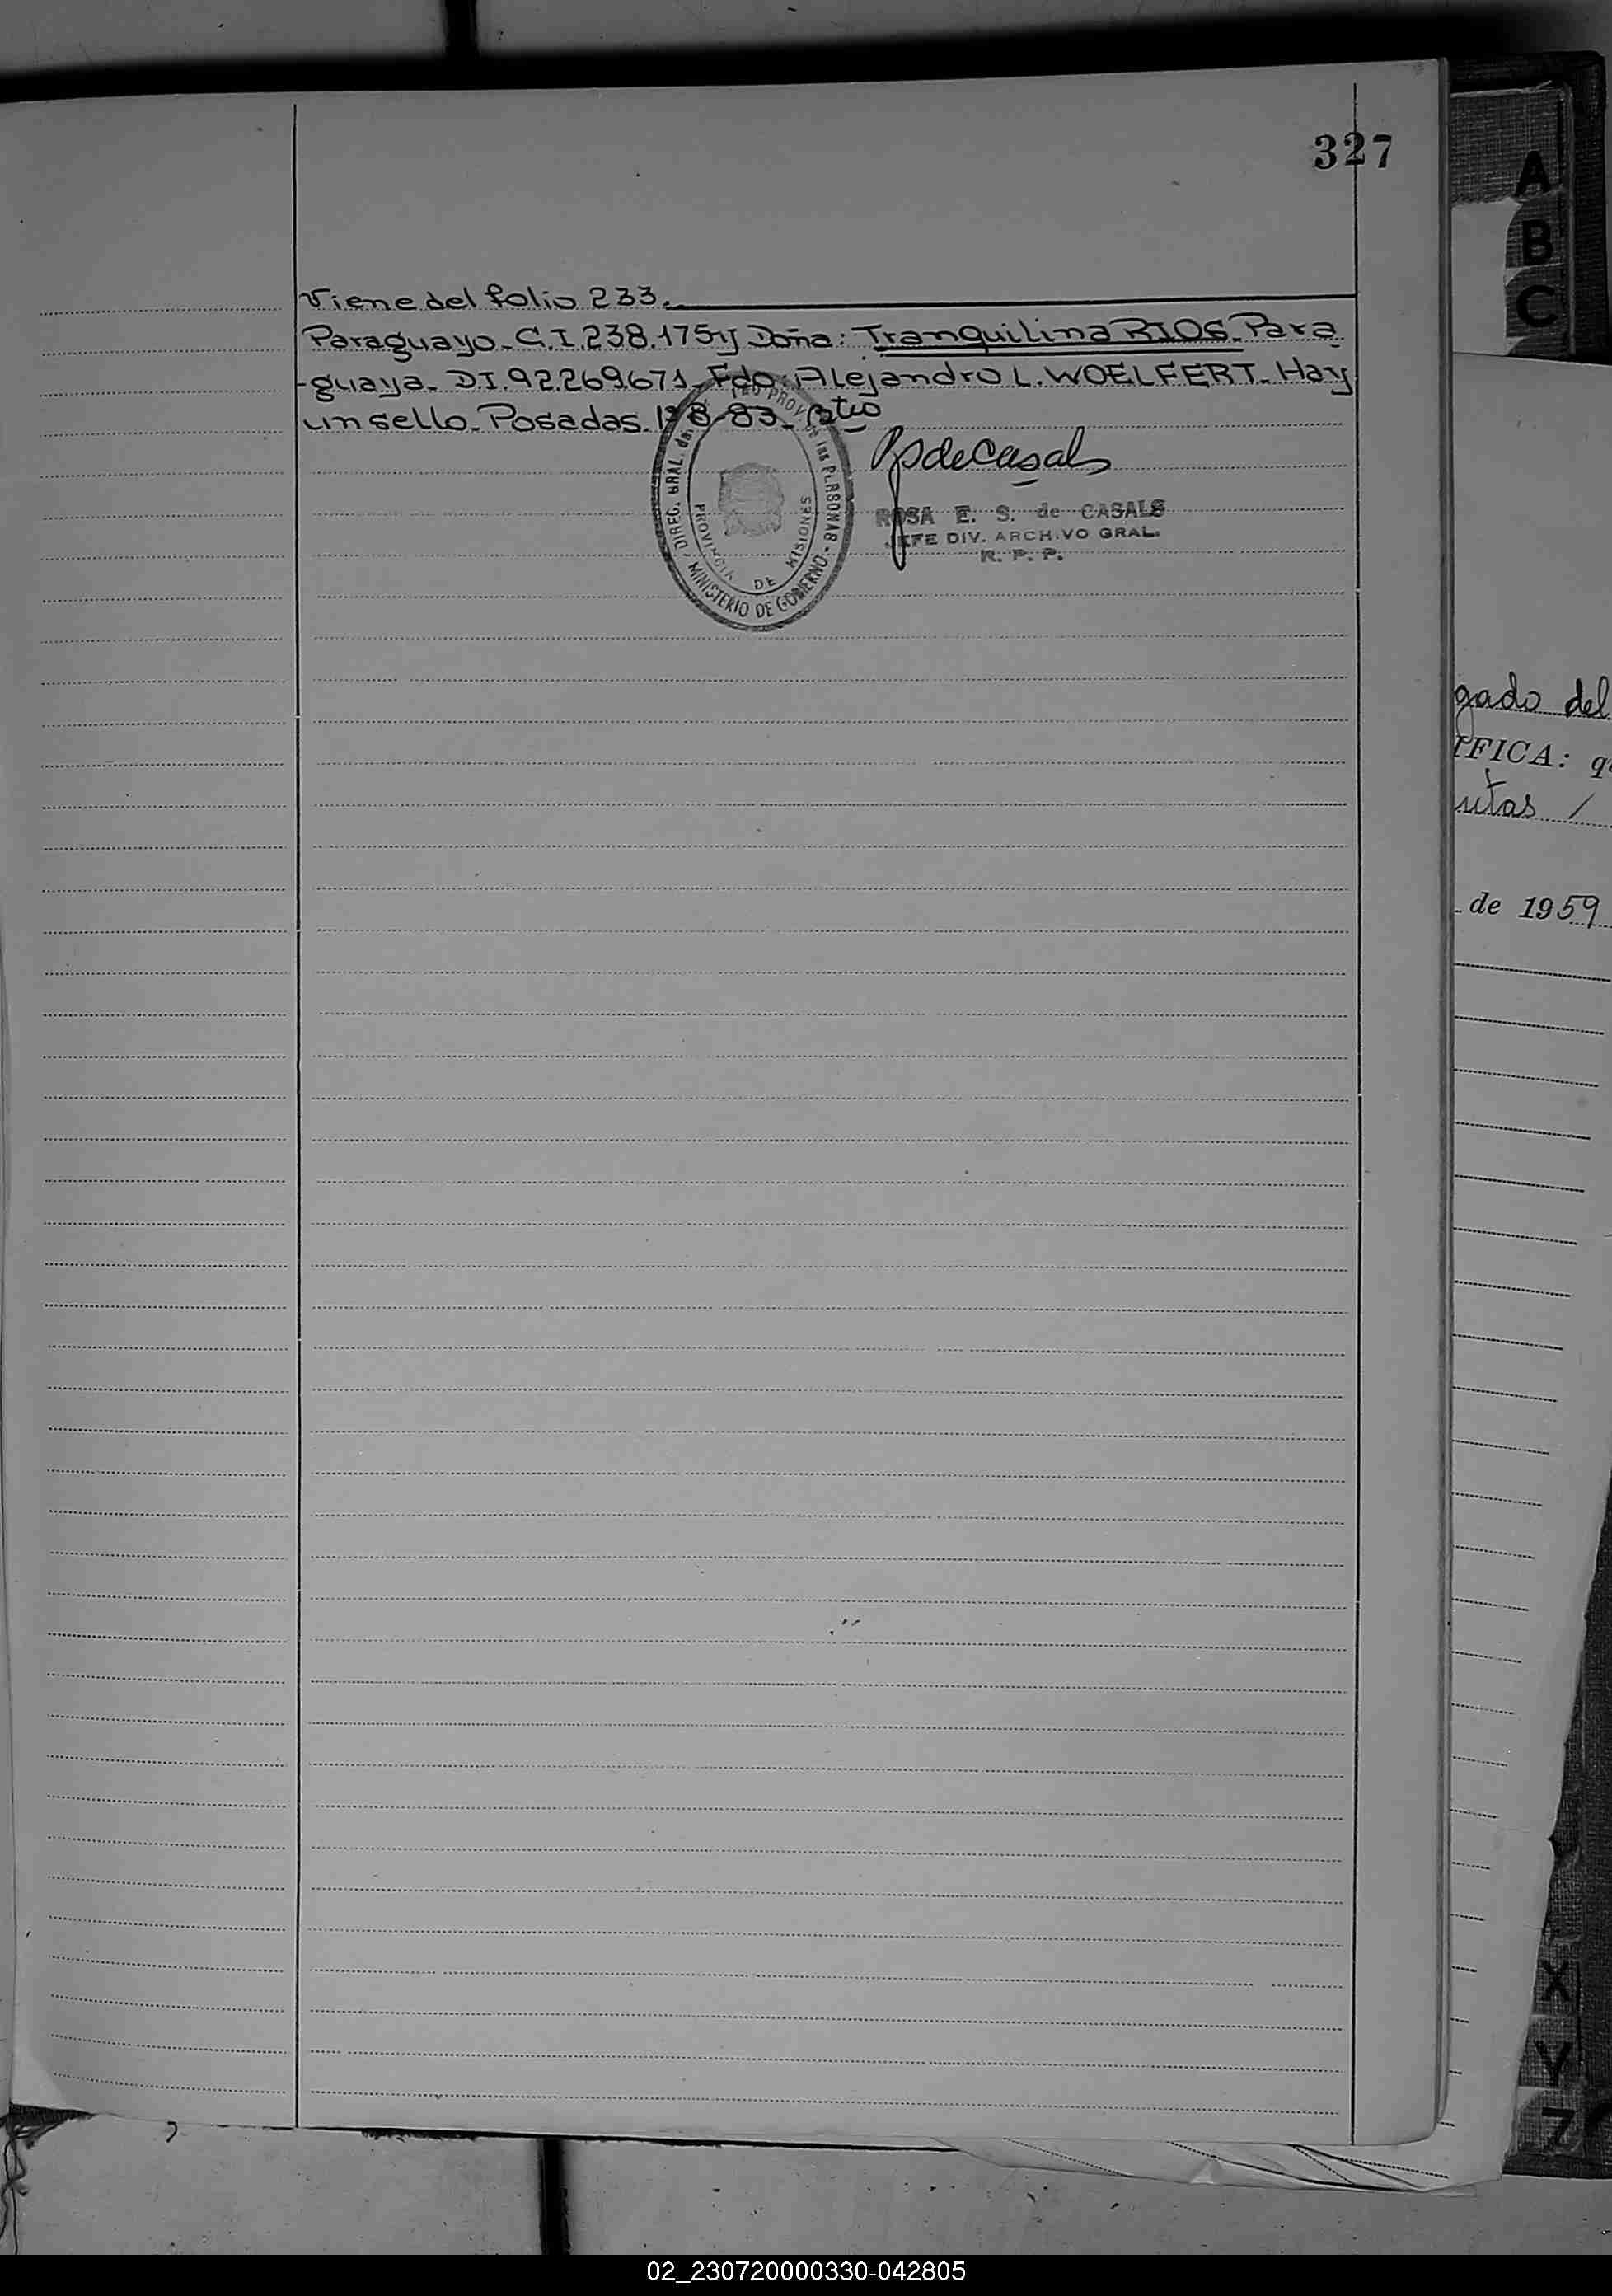 327
Viene del folio 233.
Paraguayo - C.I. 238.175 y Doña: Tranquilina RIOS - Para
-guaya - D.I. 92.269.671 - Fdo: Alejandro L. WOELFERT - Hay
un sello - Posadas. 1º-8-83 -
deCasals
ROSA E. S. de CASALS
JEFE DIV. ARCHIVO GRAL.
R. P. P.
DIREC. GRAL. de PROV. de las PERSONAS -
PROVINCIA DE MISIONES
MINISTERIO DE GOBIERNO
A
B
C
gado del
IFICA:
utas /
de 1959
X
Y
Z
02_230720000330-042805